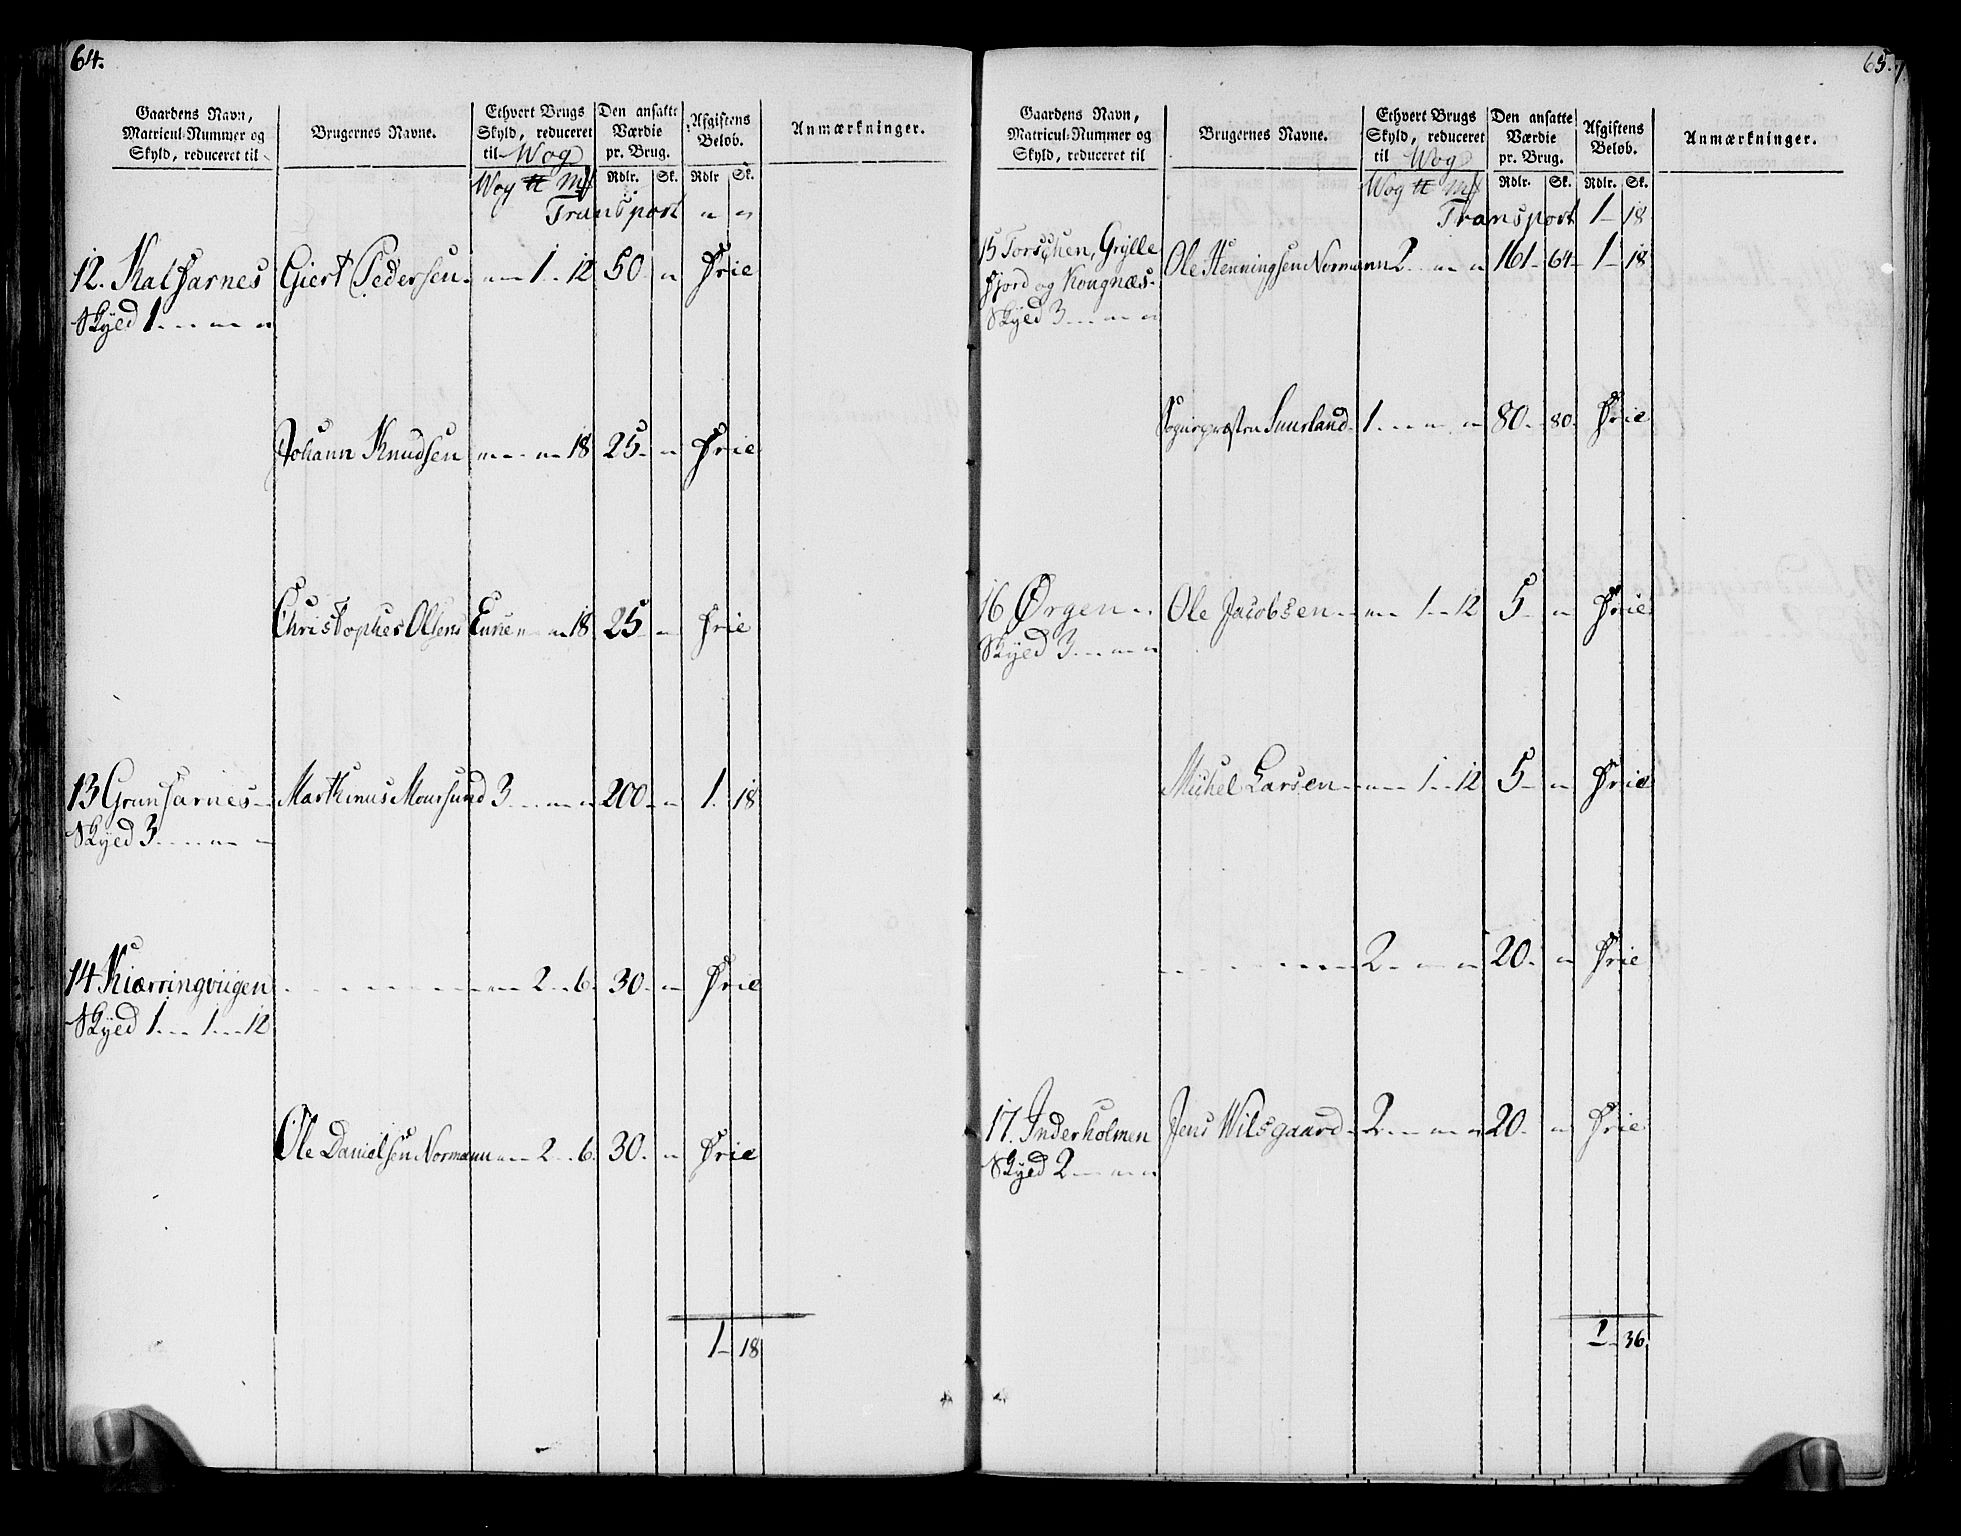 64.
Gaardens Navn, Matricul-Nummer og Skyld, reduceret til
Brugernes Navne.
Ethvert Brugs Skyld, reduceret til Wog
Den ansatte Værdie pr. Brug.
Afgiftens Beløb.
Anmærkninger.
Wog ℔ Mf Rdlr. Sk. Rdlr Sk.
Transport " "
12. Kalfarnes Giert Pedersen " 1 12 50 " Frie
Skyed 1 " "
Johann Knudsen " " 18 25 " Frie
Christopher Olsens Enne " 18 25 " Frie
13 Grunfarnes Marthinus Moursund 3 " " 200 " 1 18
Skyed 3 " "
14 Kiærringviigen " 2 6 30 " Frie
Skyed 1 1 12
Ole Danielsen Normann " 2 6 30 " Frie
1 18
65.
Gaardens Navn, Matricul-Nummer og Skyld, reduceret til
Brugernes Navne.
Ethvert Brugs Skyld, reduceret til Wog
Den ansatte Værdie pr. Brug.
Afgiftens Beløb.
Anmærkninger.
Wog ℔ Mf Rdlr. Sk. Rdlr. Sk.
Transport 1 18
15 Torschen, Grylle Ole Henningsen Normann 2 " " 161 64 1 18
fjord og Kongnæs
Skyed 3 " "
Sognepræsten Suurland 1 " " 80 80 Frie
16 Ørgen Ole Jacobsen " 1 12 5 " Frie
Skyed 3 " "
Michel Larsen " 1 12 5 " Frie
2 " " 20 " Frie
17. Inderholmen Jens Wilsgaard 2 " " 20 " Frie
Skyed 2 " "
2 36